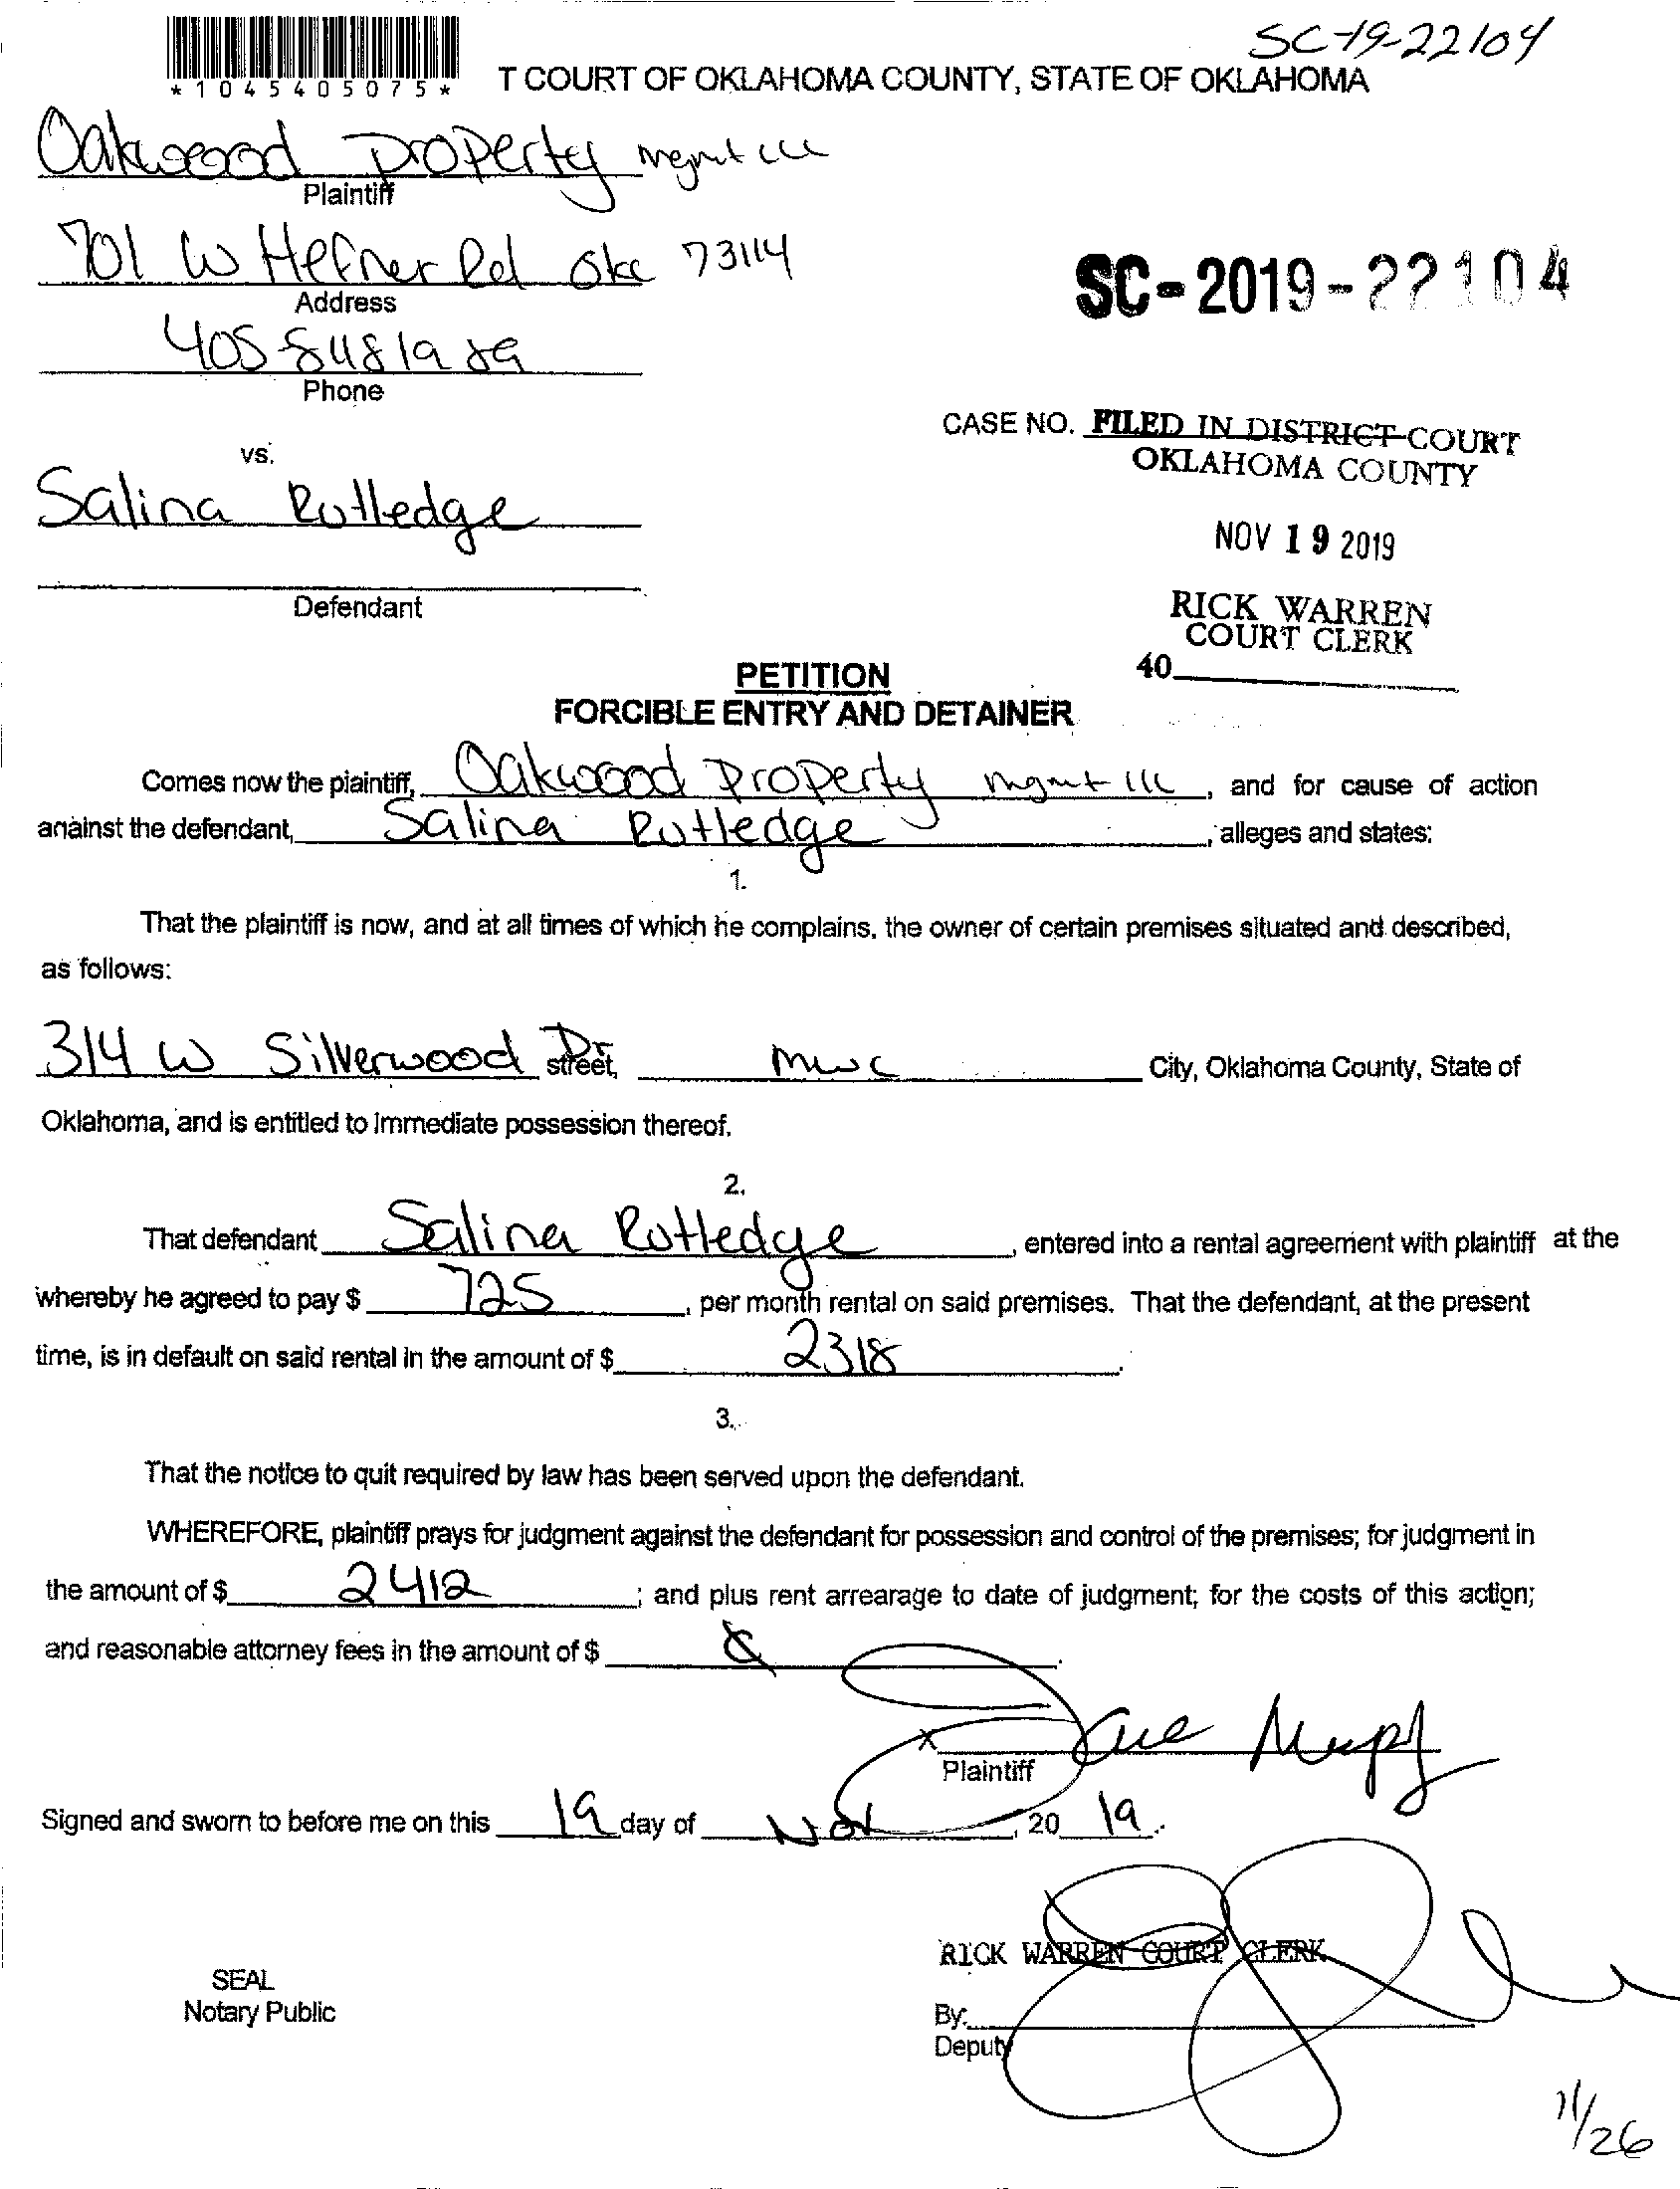 SC-19-22104
*1045405075*
T COURT OF OKLAHOMA COUNTY, STATE OF OKLAHOMA
Oakwood Property mgmt LLC
Plaintiff
701 W Hefner Rd Okc 73114
Address
SC-2019-22104
405 848 19 89
Phone
CASE NO. FILED IN DISTRICT COURT
OKLAHOMA COUNTY
vs.
Salina Rutledge
NOV 19 2019
Defendant
RICK WARREN
COURT CLERK
40
PETITION
FORCIBLE ENTRY AND DETAINER
Comes now the plaintiff, Oakwood Property mgmt llc, and for cause of action
against the defendant, Salina Rutledge, alleges and states:
1.
That the plaintiff is now, and at all times of which he complains, the owner of certain premises situated and described,
as follows:
314 W Silverwood Dr street, mwc City, Oklahoma County, State of
Oklahoma, and is entitled to immediate possession thereof.
2.
That defendant Salina Rutledge, entered into a rental agreement with plaintiff at the
whereby he agreed to pay $ 725, per month rental on said premises. That the defendant, at the present
time, is in default on said rental in the amount of $ 2318.
3.
That the notice to quit required by law has been served upon the defendant.
WHEREFORE, plaintiff prays for judgment against the defendant for possession and control of the premises; for judgment in
the amount of $ 2412; and plus rent arrearage to date of judgment; for the costs of this action;
and reasonable attorney fees in the amount of $
X
Plaintiff
Signed and sworn to before me on this 19 day of Nov, 20 19.
RICK WARREN COURT CLERK
SEAL
Notary Public
By:
Deputy
11/26